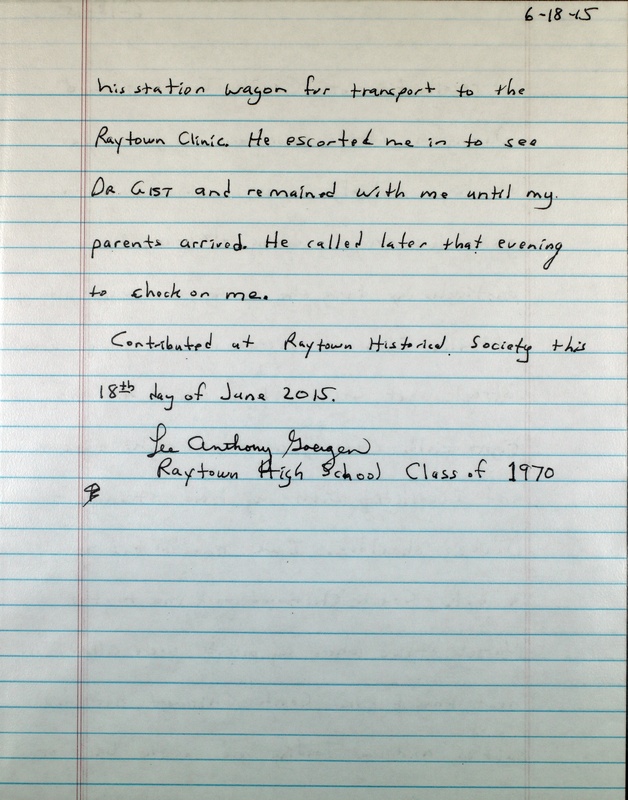 6-18-15
his station wagon for transport to the
Raytown Clinic. He escorted me in to see
DR GIST and remained with me until my
parents arrived. He called later that evening
to check on me.
Contributed at Raytown Historical Society this
18th day of June 2015.
Lee Anthony Goergen
Raytown High School Class of 1970